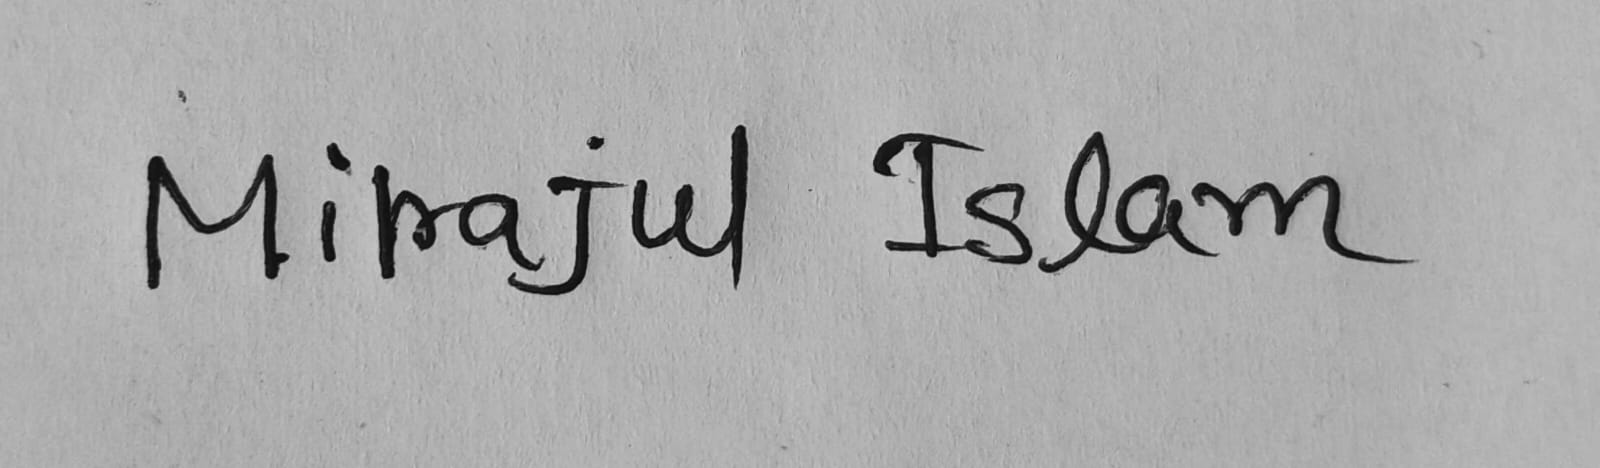 Mirajul Islam